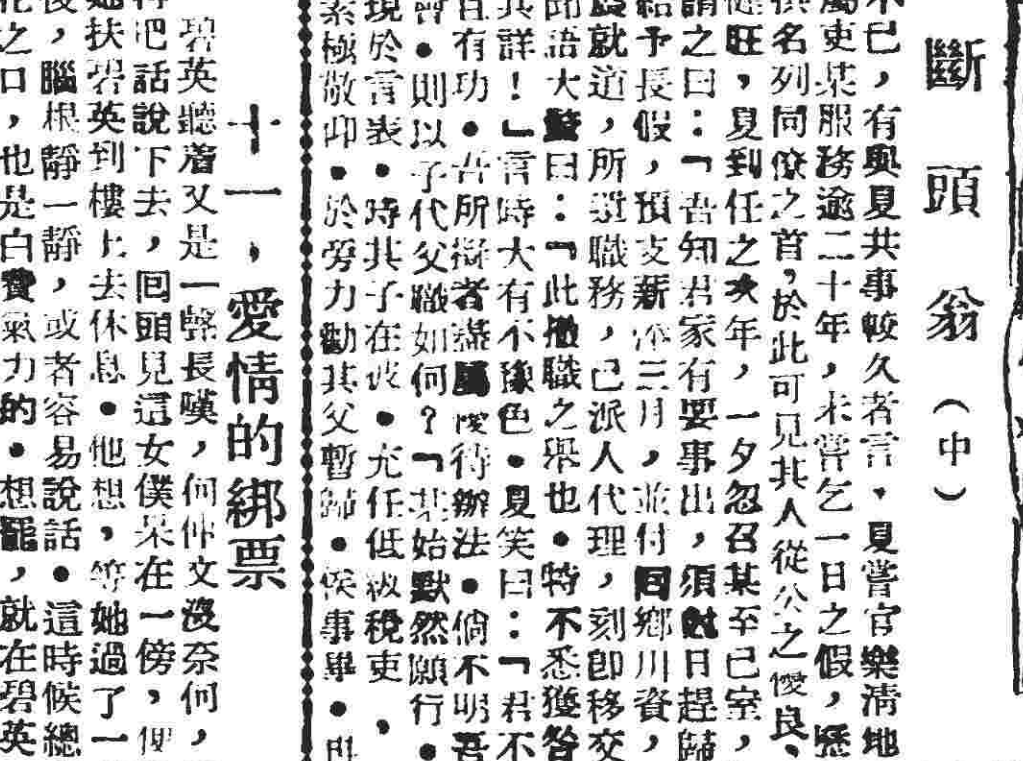 斷頭翁（中）
不已，有與夏共事較久者言，夏嘗官樂淸地
屬吏某服務逾二十年，未嘗乞一日之假，歷
撰名列同僚之首，於此可見其人從公之優良、
健旺，夏到任之次年，一夕忽召某至己室，
謂之曰：「吾知君家有要事出，須尅日趕歸
給予長假，預支薪俸三月，並付回鄉川資，
就道，所遺職務，已派人代理，刻卽移交
卽語大驚曰：「此撤職之舉也．特不悉獲咎
其詳！」言時大有不豫色．夏笑曰：「君不
且有功．吾所擬者屬優待辦法．倘不明吾
會．則以子代父職如何？」某始默然願行．
現於言表．時其子在皮．充任低級稅吏，
素極敬仰．於旁力勸其父暫歸．俟事畢．
十一，愛情的綁票
碧英聽着又是一聲長嘆，何仲文沒奈何，
吧話說下去，回頭見這女僕呆在一傍，便
她扶碧英到樓上去休息．他想，等她過了一
後，腦根靜一靜，或者容易說話．這時候總
花之口，也是白費氣力的．想罷，就在碧英